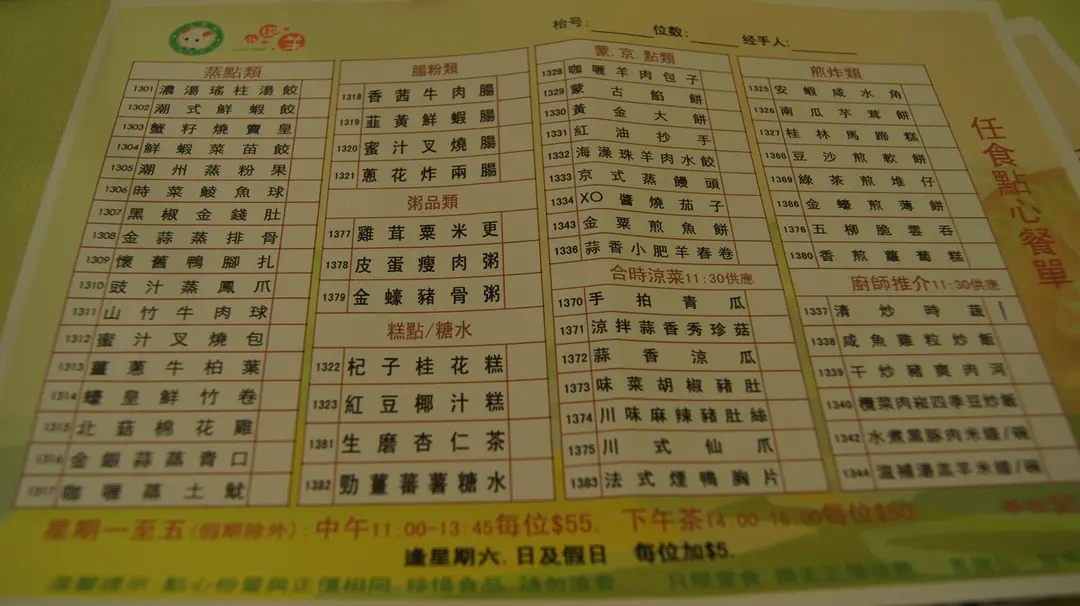 枱号:
位数:
经手人:
任食點心餐單
蒸點類
1301 濃湯瑤柱湯餃
1302 潮式鮮蝦餃
1303 蟹籽燒賣皇
1304 鮮蝦菜苗餃
1305 潮州蒸粉果
1306 時菜鯪魚球
1307 黑椒金錢肚
1308 金蒜蒸排骨
1309 懷舊鴨腳扎
1310 豉汁蒸鳳爪
1311 山竹牛肉球
1312 蜜汁叉燒包
1313 薑蔥牛柏葉
1314 蠔皇鮮竹卷
1315 北菇棉花雞
1316 金銀蒜蒸青口
1317 咖喱蒸土魷
腸粉類
1318 香茜牛肉腸
1319 韮黃鮮蝦腸
1320 蜜汁叉燒腸
1321 蔥花炸兩腸
粥品類
1377 雞茸粟米更
1378 皮蛋瘦肉粥
1379 金蠔豬骨粥
糕點/糖水
1322 杞子桂花糕
1323 紅豆椰汁糕
1381 生磨杏仁茶
1382 勁薑蕃薯糖水
蒙.京.點類
1328 咖喱羊肉包子
1329 蒙古餡餅
1330 黃金大餅
1331 紅油抄手
1332 海澡珠羊肉水餃
1333 京式蒸饅頭
1334 XO醬燒茄子
1343 金粟煎魚餅
1336 蒜香小肥羊春卷
合時涼菜11:30供應
1370 手拍青瓜
1371 涼拌蒜香秀珍菇
1372 蒜香涼瓜
1373 味菜胡椒豬肚
1374 川味麻辣豬肚絲
1375 川式仙爪
1383 法式煙鴨胸片
煎炸類
1325 安蝦咸水角
1326 南瓜芋茸餅
1327 桂林馬蹄糕
1368 豆沙煎軟餅
1369 綠茶煎堆仔
1386 金蠔煎薄餅
1376 五柳脆雲吞
1380 香煎蘿蔔糕
廚師推介11:30供應
1337 清炒時蔬
1338 咸魚雞粒炒飯
1339 干炒豬爽肉河
1340 欖菜肉崧四季豆炒飯
1342 水煮黑豚肉米線/碗
1344 滋補湯羔羊米線/碗
星期一至五(假期除外):中午11:00-13:45每位$55. 下午茶14:00-16:00每位$50
逢星期六.日及假日 每位加$5.
溫馨提示:點心份量與正價相同,珍惜食品,請勿浪費